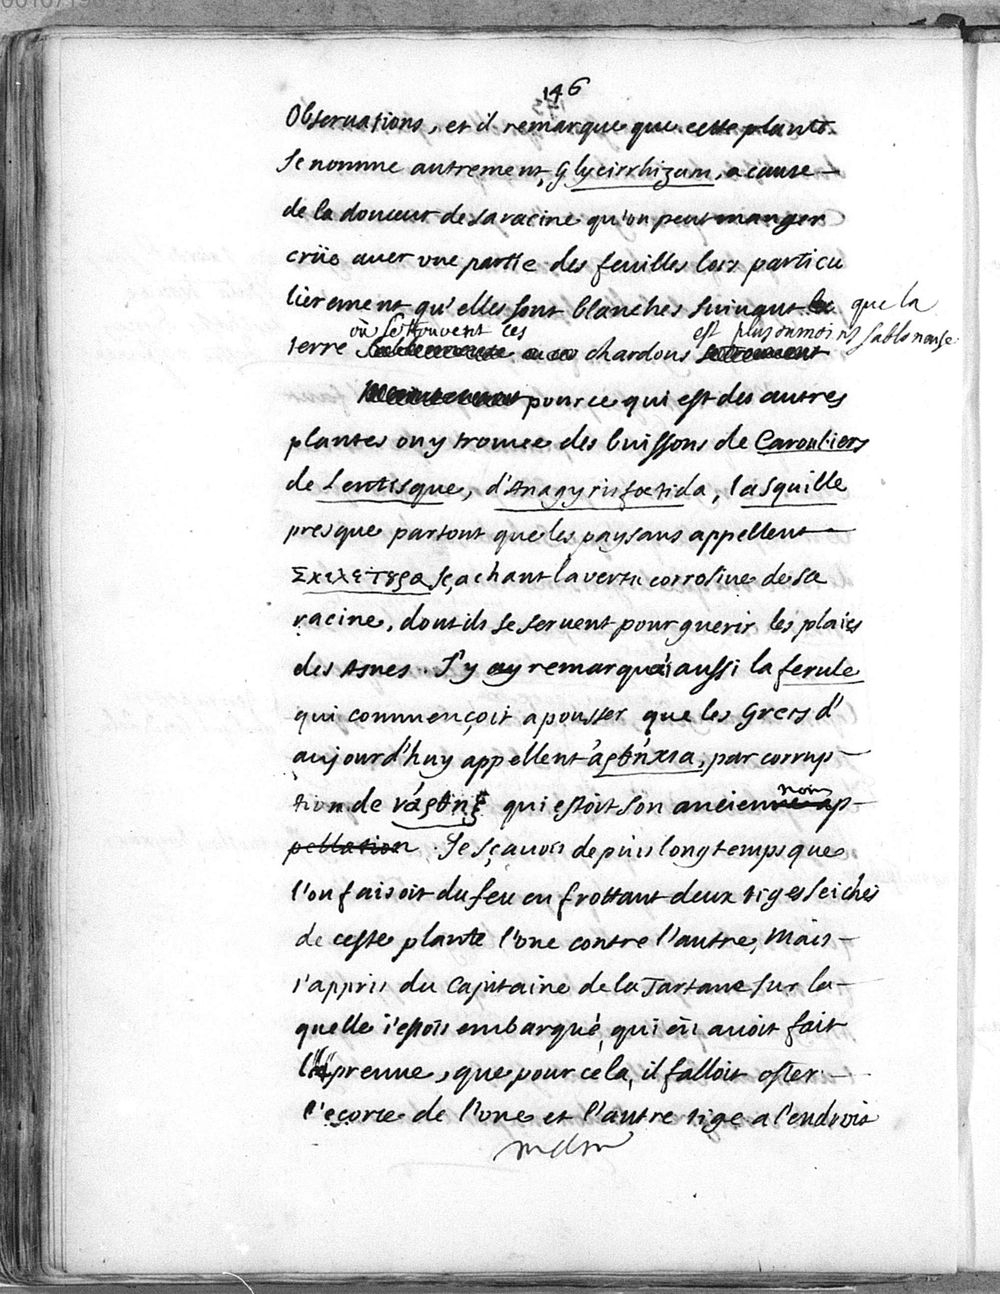 146
Obseruations, et il remarque que cette plante
se nomme autrement, Glycirrhizam, a cause
de la douceur de sa racine qu'on peut manger
crüe auec vne partie des feuilles lors particu
lierement qu'elles sont blanches suiuant que la
terre où se trouuent ces chardons est plus ou moins sablonneuse
pour ce qui est des autres
plantes on y trouue des buissons de Carouliers
de Lentisque, d'Anagyris foetida, la squille
presque partout que les paysans appellent
Σκιλετȣρα sçachant la vertu corrosiue de sa
racine, dont ils se seruent pour guerir les plaies
des Asnes. J'y ay remarqué aussi la ferule
qui commençoit a pousser que les Grecs d'
aujourd'huy appellent ἀρθήκια, par corrup-
tion de νάρθηξ qui estoit son ancien nom ap-
pellation. Je sçauois depuis longtemps que
l'on faisoit du feu en frottant deux tiges seiches
de ceste plante l'vne contre l'autre, Mais
i'appris du Capitaine de la Tartane sur la-
quelle i'estois embarqué, qui en auoit fait
l'épreuue, que pour cela, il falloit oster
l'ecorce de l'vne et l'autre tige a l'endroit